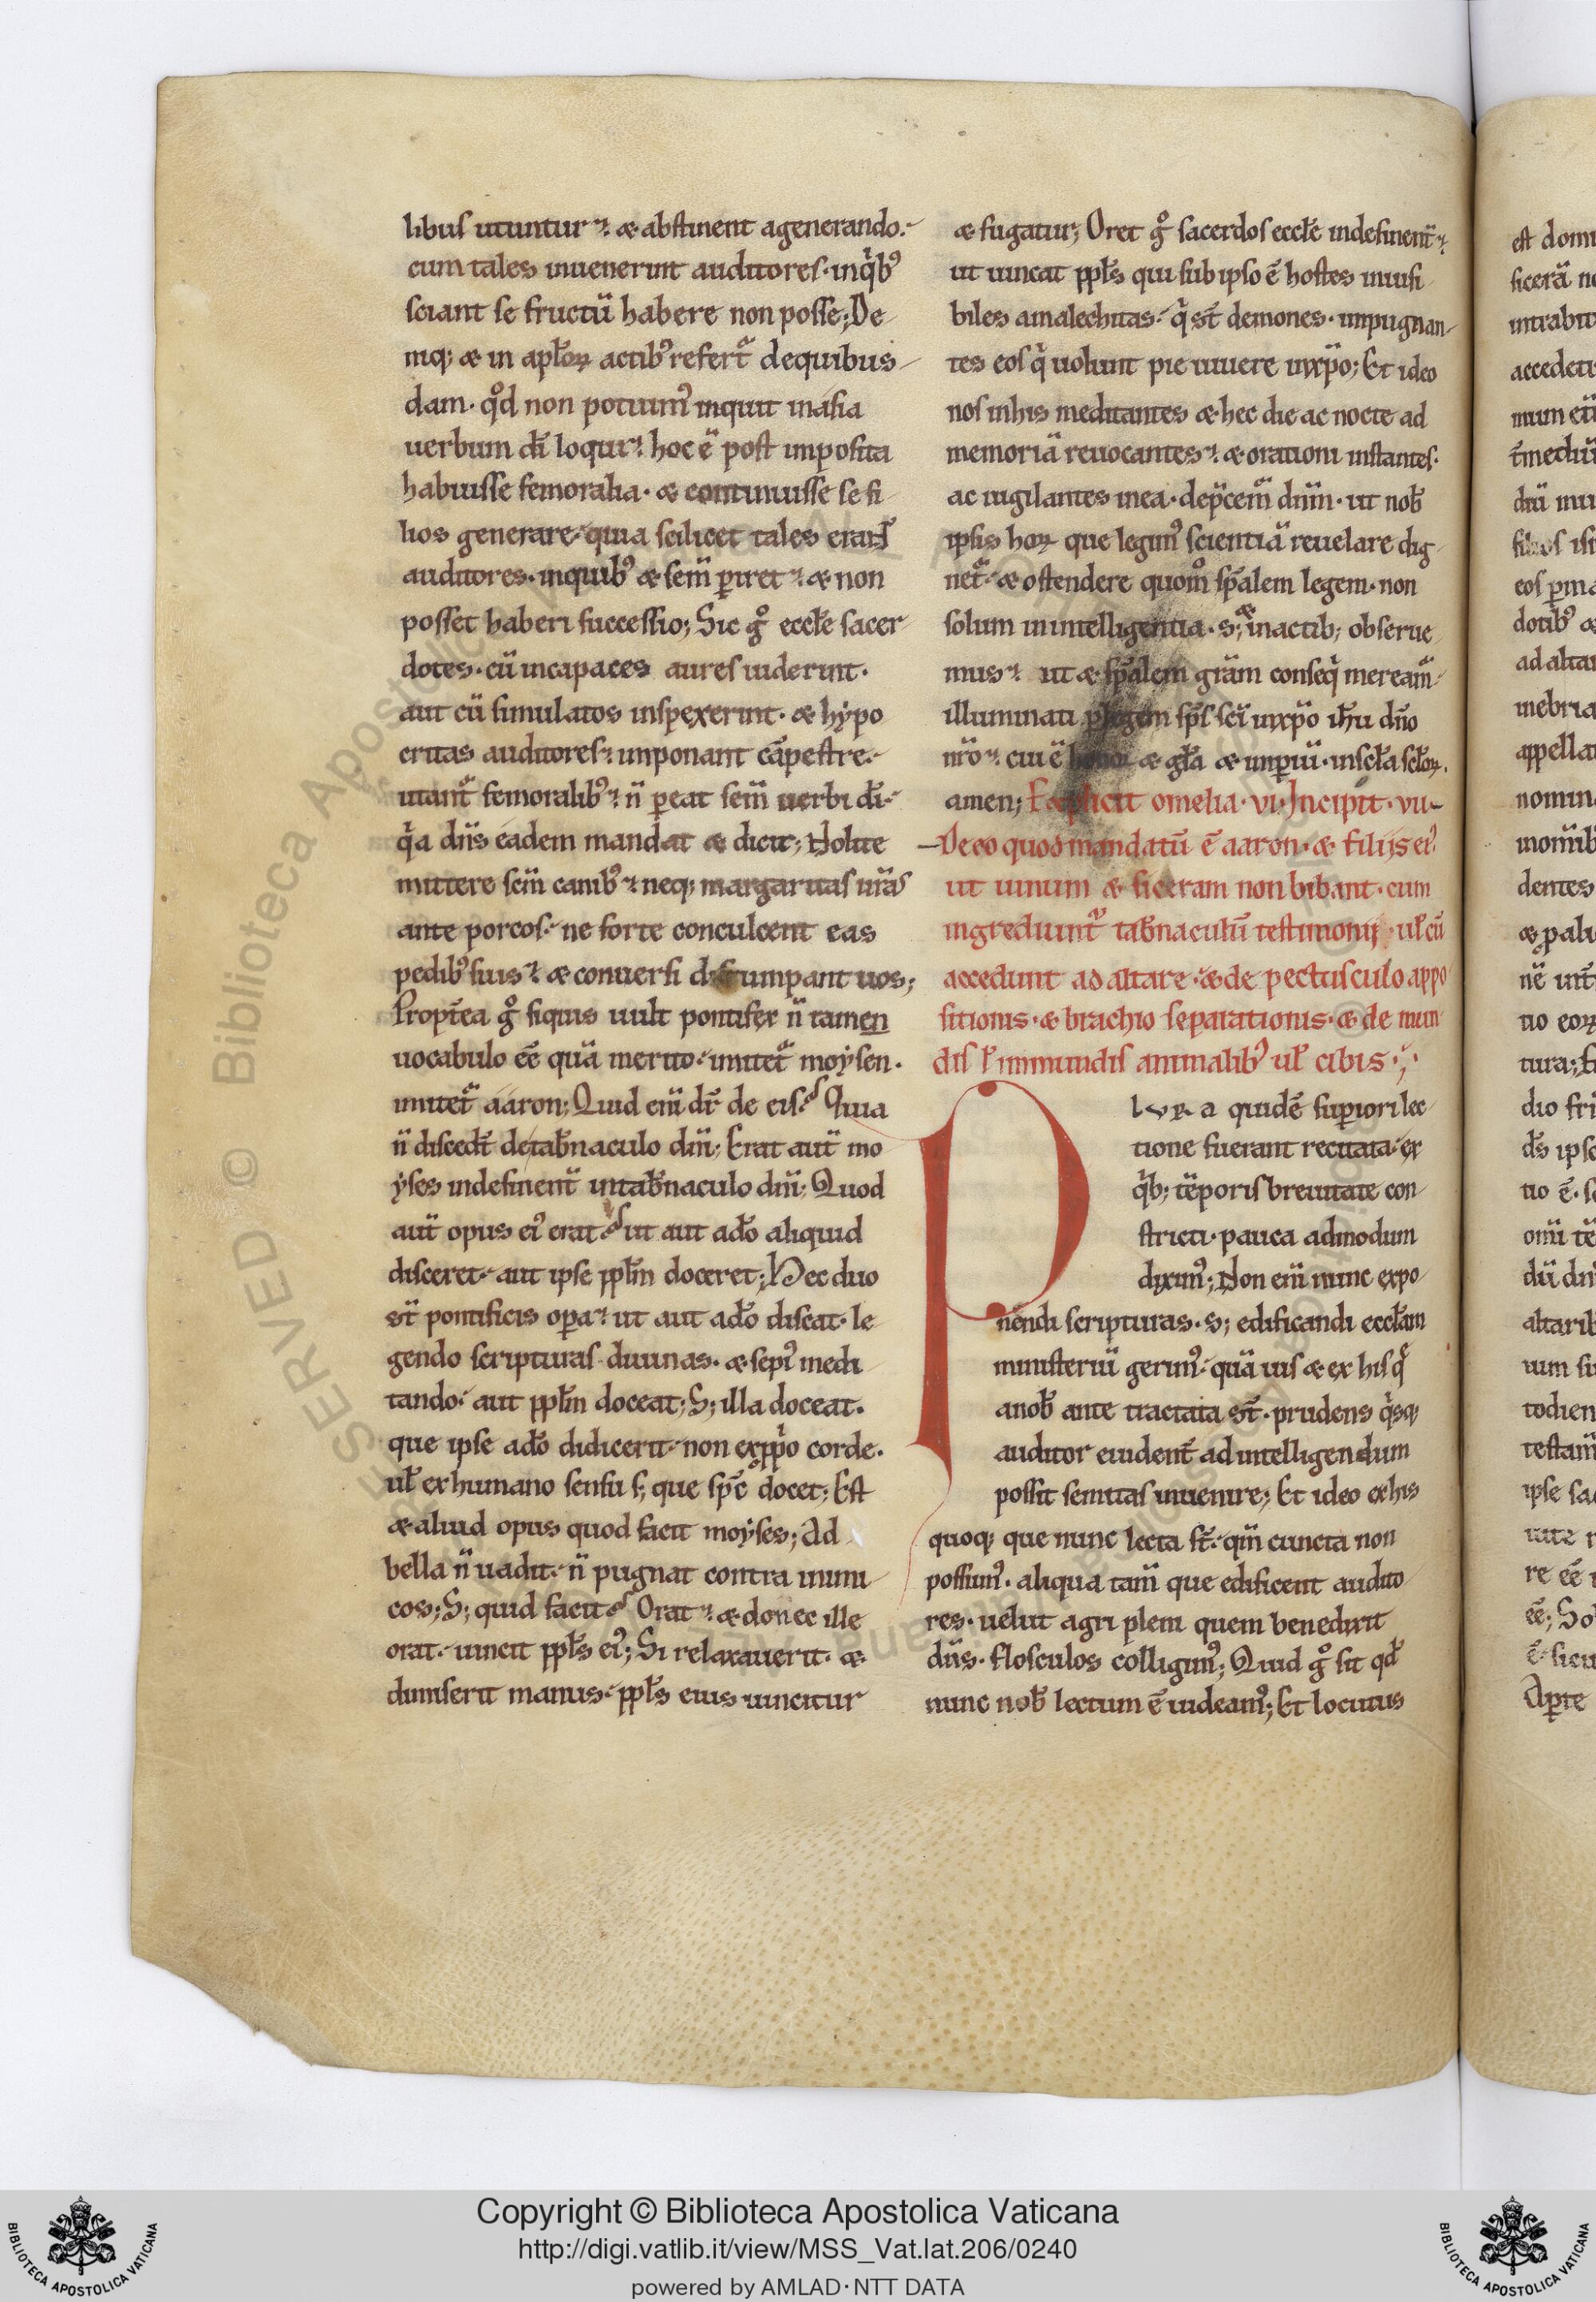 libus utuntur. & abstinent a generando.
cum tales inuenerint auditores. inqͥbꝰ
sciant se fructū habere non posse; De
inq; & in apl̄oꝝ actibꝰ refert᷑ dequibus
dam. qͦd non potuimꝰ inquit inasia
uerbum dī loqui. hoc ē post imposita
habuisse femoralia. & continuisse se fi
lios generare. quia scilicet tales erant
auditores. inquibꝰ & sem̄ ꝑiret. & non
posset haberi successio; Sic gͦ eccl̄e sacer
dotes. cū incapaces aures uiderint.
aut cū simulatos inspexerint. & hypo
critas auditores. imponant cāpestre.
utant᷑ femoralibꝰ. n̄ ꝑeat sem̄ uerbi dī.
qͥa dn̄s eadem mandat & dicit; Nolite
mittere sem̄ canibꝰ. neq; margaritas ur̄as
ante porcos. ne forte conculcent eas
pedibꝰ suis. & conuersi disrumpant uos;
Propt̄ea gͦ siquis uult pontifex n̄ tamen
uocabulo eē quā merito. imitet᷑ moysen.
imitet᷑ aaron; Quid eni̅ dr̄ de eis? Quia
n̄ disced̄t detab̄naculo dn̄i; Erat aut̄ mo
yses indesinent̄ intab̄naculo dn̄i; Quod
aut̄ opus eiꝰ erat? ut aut ad̄o aliquid
disceret. aut ipse ppl̄m doceret; Hec duo
st̄ pontificis oꝑa. ut aut ad̄o discat. le
gendo scripturas diuinas. & sepiꝰ medi
tando. aut ppl̄m doceat; S; illa doceat.
que ipse ad̄o didicerit. non exꝓpͥo corde.
ul̄ exhumano sensu s; que sp̄c docet; Est
& aliud opus quod facit moyses; Ad
bella n̄ uadit. n̄ pugnat contra inimi
cos; S; quid facit? Orat. & donec ille
orat. uincit ppl̄s eiꝰ; Si relaxauerit. &
dimiserit manus. ppl̄s eius uincitur
& fugatur; Oret gͦ sacerdos eccl̄e indesinent̄
ut uincat ppl̄s qui sub ipso ē hostes inuisi
biles amalechitas. qͥ st̄ demones. impugnan
tes eos qͥ uolunt pie uiuere inxp̄o; Et ideo
nos inhis meditantes & hec die ac nocte ad
memoriā reuocantes. & orationi instantes.
ac uigilantes inea. dep̄cem᷑ dn̄m. ut nob̄
ipsis hoꝝ que legimꝰ scientiā reuelare dig
net᷑. & ostendere quomͦ sp̄alem legem. non
solum inintelligentia. s; & inactib; obserue
mus. ut & sp̄alem grām conseqͥ mereām᷑
illuminati ꝑlegem sp̄s sc̄i inxp̄o ih̄u dn̄o
nr̄o. cui ē honor & gl̄a & imꝑiū. inscl̄a scl̄oꝝ.
amen; Explicit omelia. vi. Incipit. vii.
De eo quod mandatū ē aaron. & filijs eiꝰ
ut uinum & siceram non bibant. cum
ingrediunt᷑ tab̄naculū testimonij. ul̄ cū
accedunt ad altare. & de pectusculo appo
sitionis. & brachio separationis. & de mun
dis l̄ immundis animalibꝰ ul̄ cibis.
PLVRA quidē suꝑiori lec
tione fuerant recitata. ex
qͥb; tēporis breuitate con
stricti. pauca admodum
diximꝰ; Non eni̅ nunc expo
nendi scripturas. s; edificandi eccl̄am
ministeriū gerimꝰ. quā uis & ex his qͥ
anob̄ ante tractata st̄. prudens qͥsq;
auditor euident̄ ad intelligendum
possit semitas inuenire; Et ideo exhis
quoq; que nunc lecta st̄. qm̄ cuncta non
possumꝰ. aliqua tam̄ que edificent audito
res. uelut agri plem quem benedixit
dn̄s. flosculos colligimꝰ; Quid gͦ sit qd̄
nunc nob̄ lectum ē uideamꝰ; Et locutus
Copyright © Biblioteca Apostolica Vaticana
http://digi.vatlib.it/view/MSS_Vat.lat.206/0240
powered by AMLAD·NTT DATA